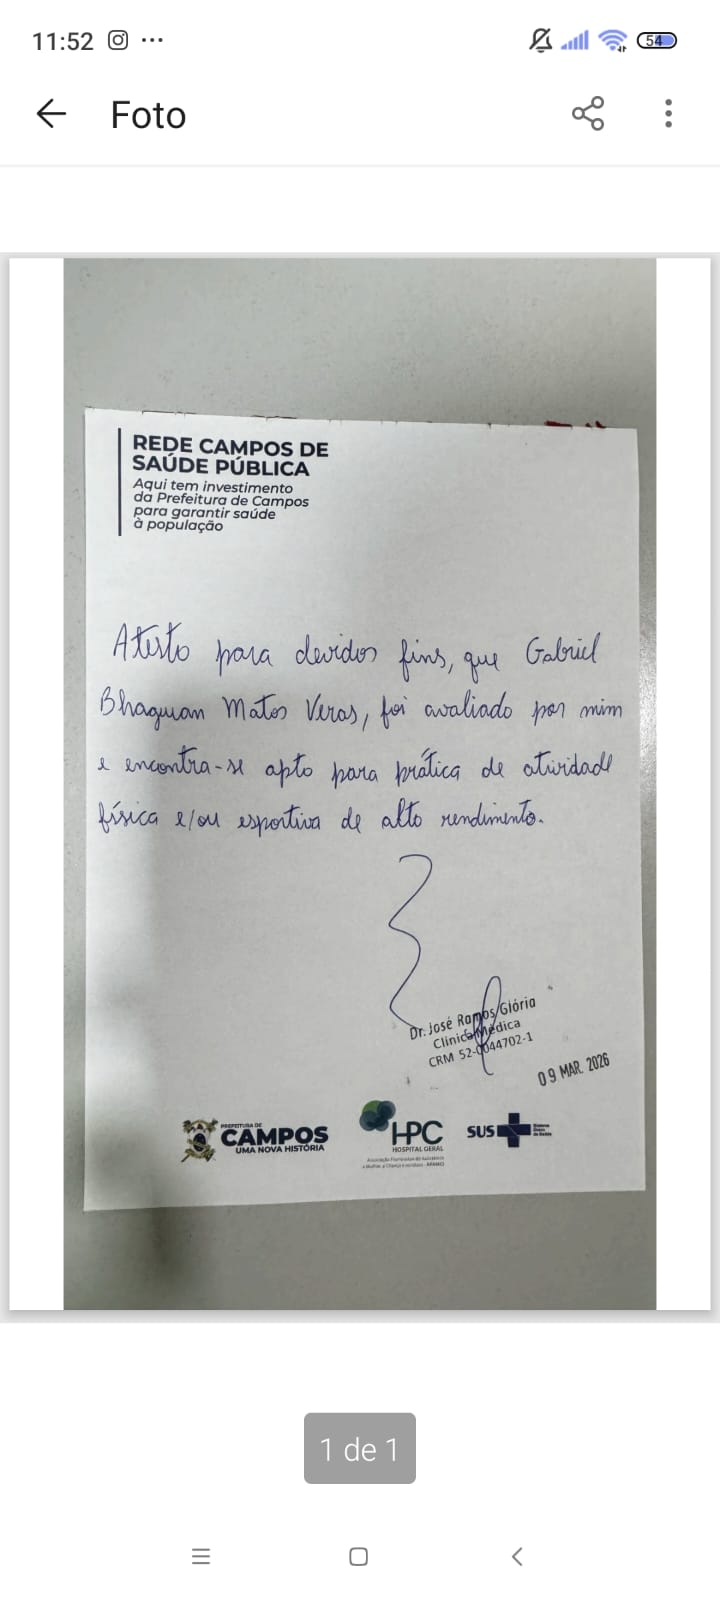 11:52
54
Foto
REDE CAMPOS DE
SAÚDE PÚBLICA
Aqui tem investimento
da Prefeitura de Campos
para garantir saúde
à população
Atesto para devidos fins, que Gabriel
Bhaguan Matos Veras, foi avaliado por mim
e encontra-se apto para prática de atividade
física e/ou esportiva de alto rendimento.
Dr. José Ramos Glória
Clínica Médica
CRM 52-0044702-1
09 MAR. 2026
PREFEITURA DE
CAMPOS
UMA NOVA HISTÓRIA
HPC
HOSPITAL GERAL
SUS
1 de 1